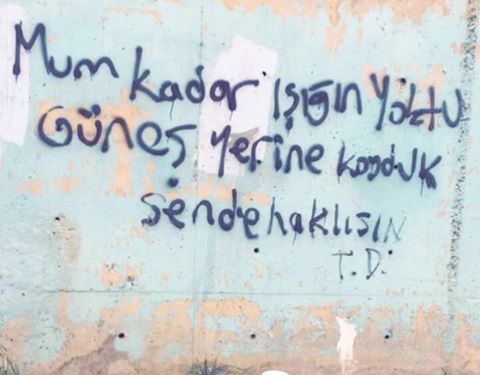 Mum kadar ışığın yoktu
Güneş yerine koyduk
Sende haklısın
T.D.